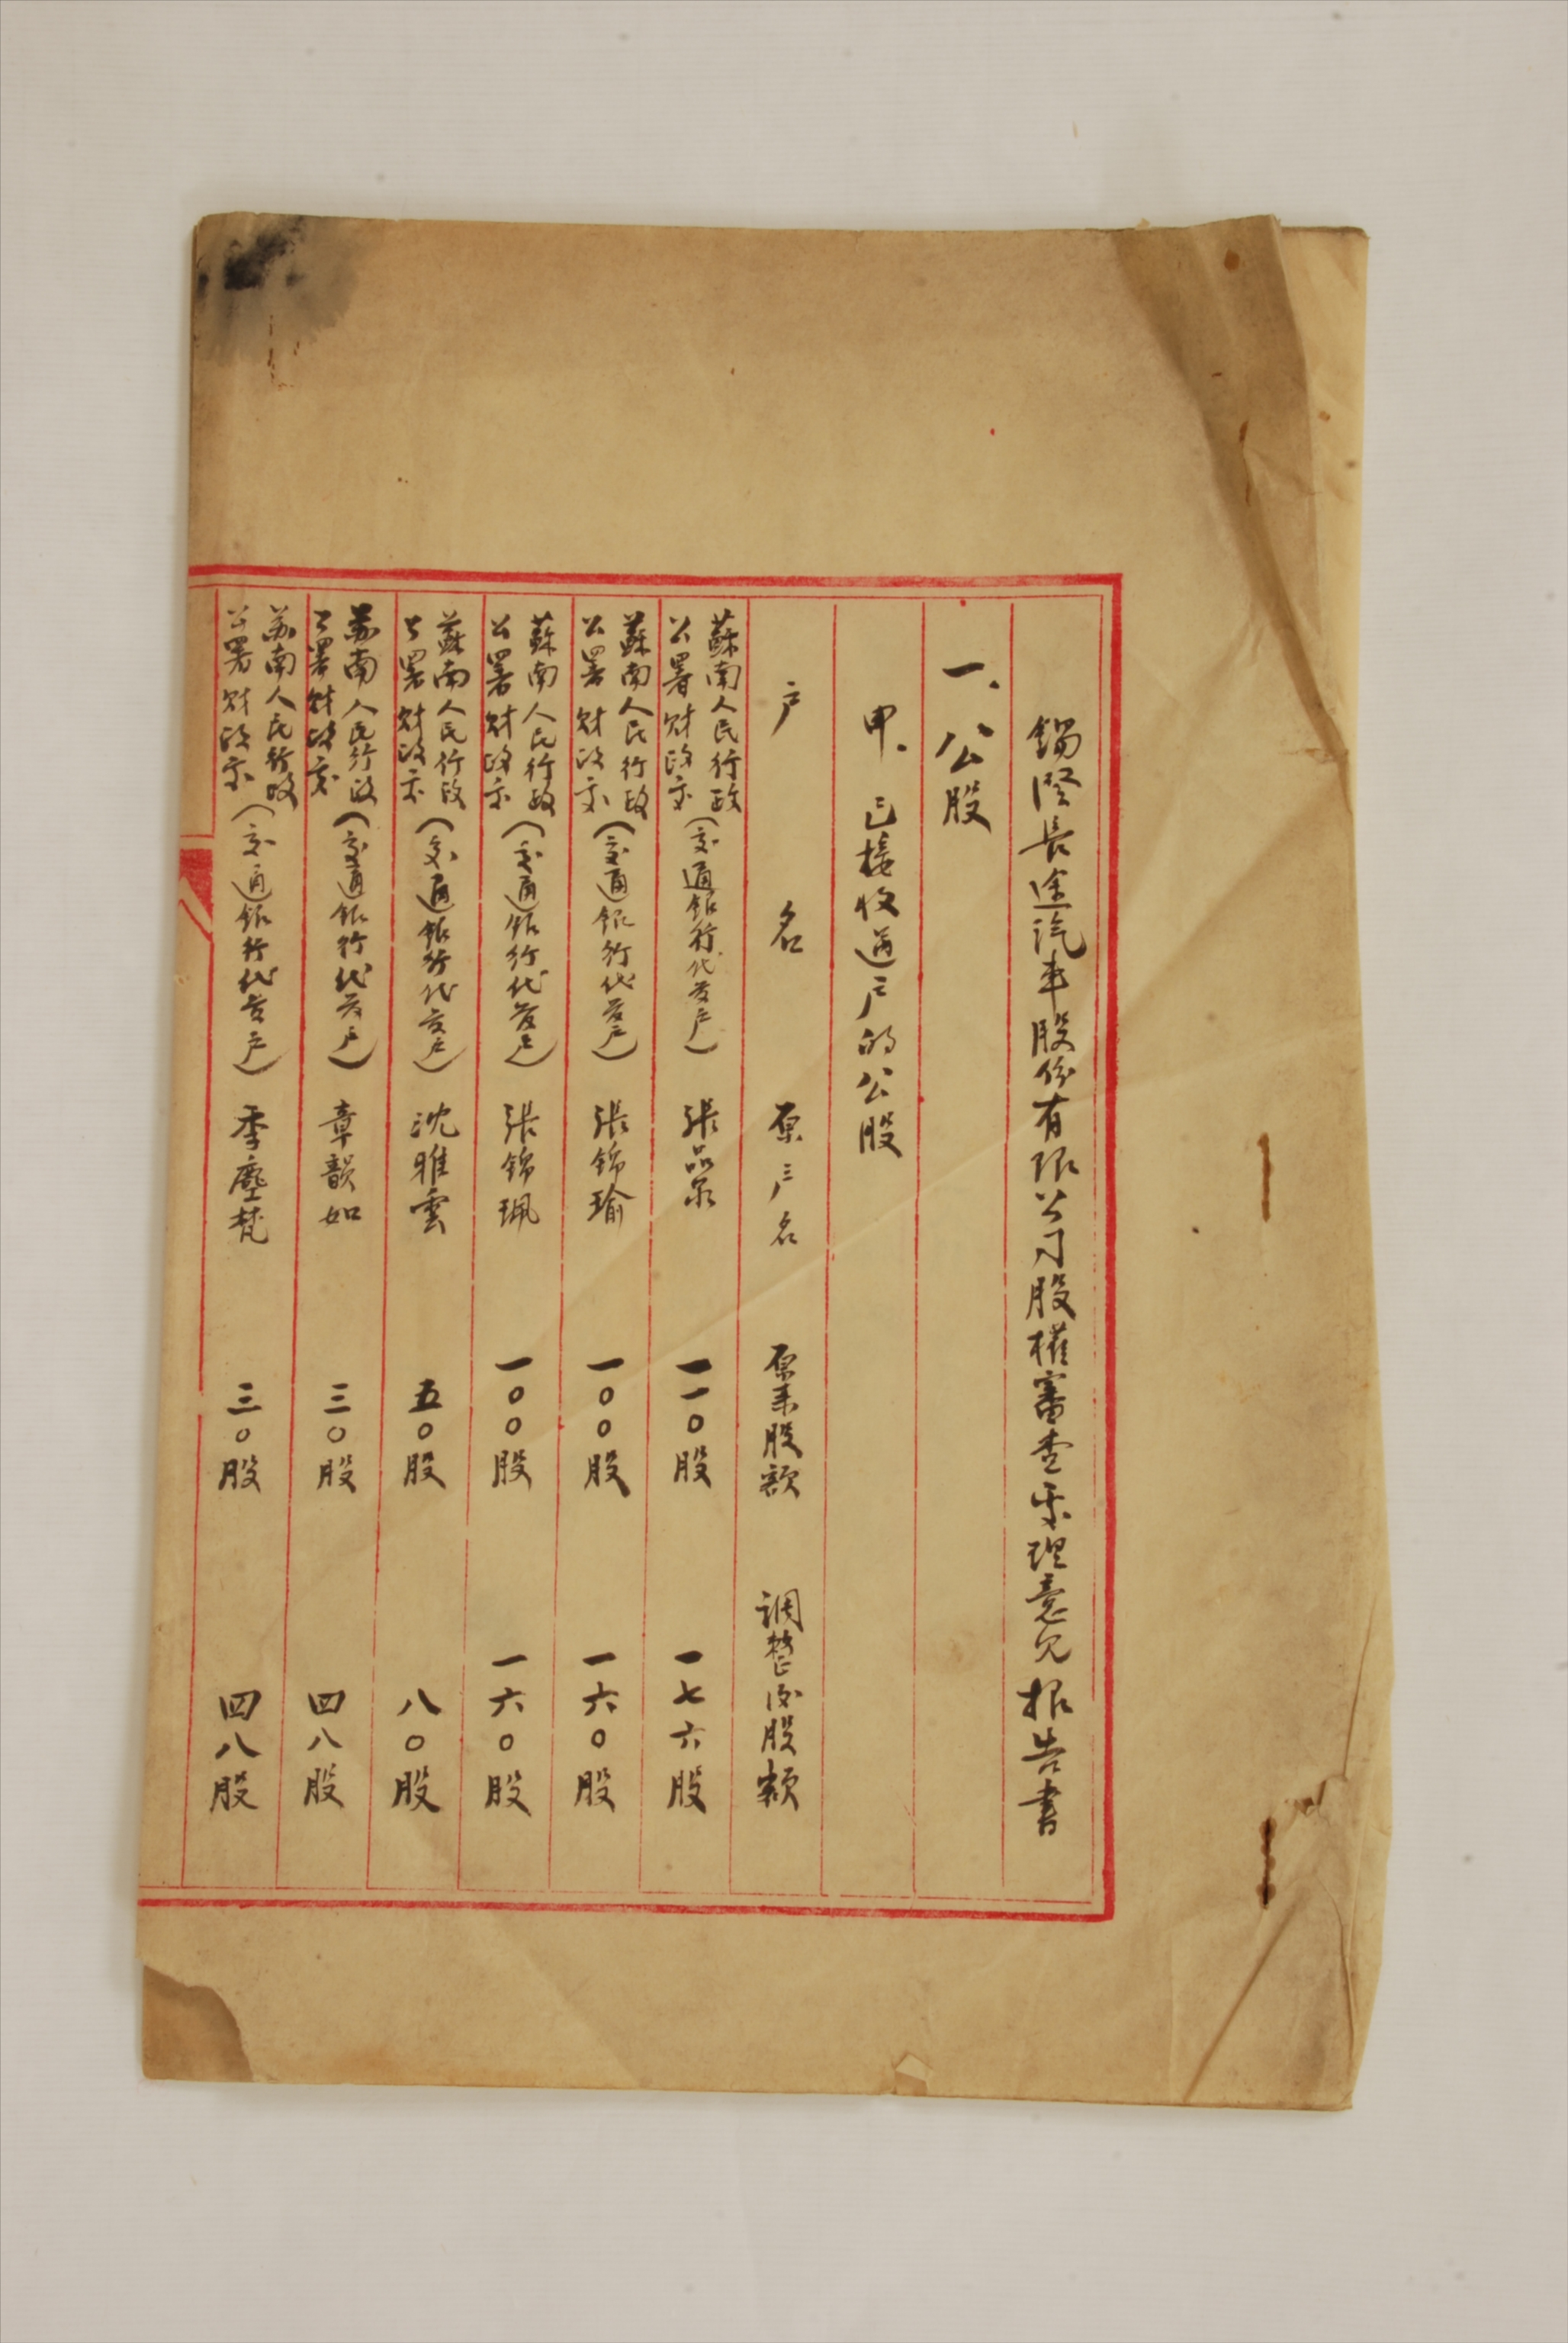 錫澄長途汽車股份有限公司股權審查處理意見報告書
一、公股
甲、已接收過户的公股
户名 原户名 原來股額 調整後股額
蘇南人民行政公署财政处(交通銀行代管户) 張品泉 一一〇股 一七六股
蘇南人民行政公署财政处(交通銀行代管户) 張錦瑜 一〇〇股 一六〇股
蘇南人民行政公署财政处(交通銀行代管户) 張錦珮 一〇〇股 一六〇股
蘇南人民行政公署财政处(交通銀行代管户) 沈雅雲 五〇股 八〇股
苏南人民行政公署财政处(交通銀行代管户) 章韻如 三〇股 四八股
苏南人民行政公署财政处(交通銀行代管户) 季塵梵 三〇股 四八股